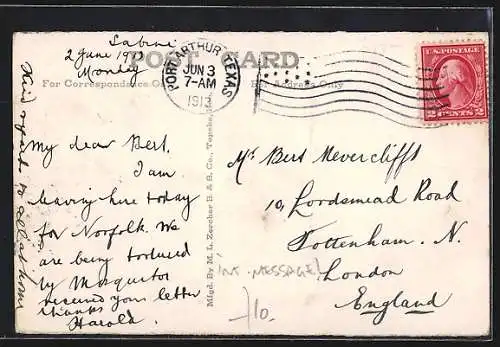 Sabine
2 June 1913
Monday
POST CARD
For Correspondence
For Address Only
PORT ARTHUR, TEXAS
JUN 3
7-AM
1913
U.S. POSTAGE
2 CENTS 2
My dear Bert.
I am
leaving here today
for Norfolk. We
are being tortured
by Mosquitos
received your letter
thanks
Harold.
to all at home
Mfgd. By M. L. Zercher B. & S. Co., Topeka,
Mr Bert Nevercliffe
10, Lordsmead Road
Tottenham. N.
London
England
INT. MESSAGE!
10.